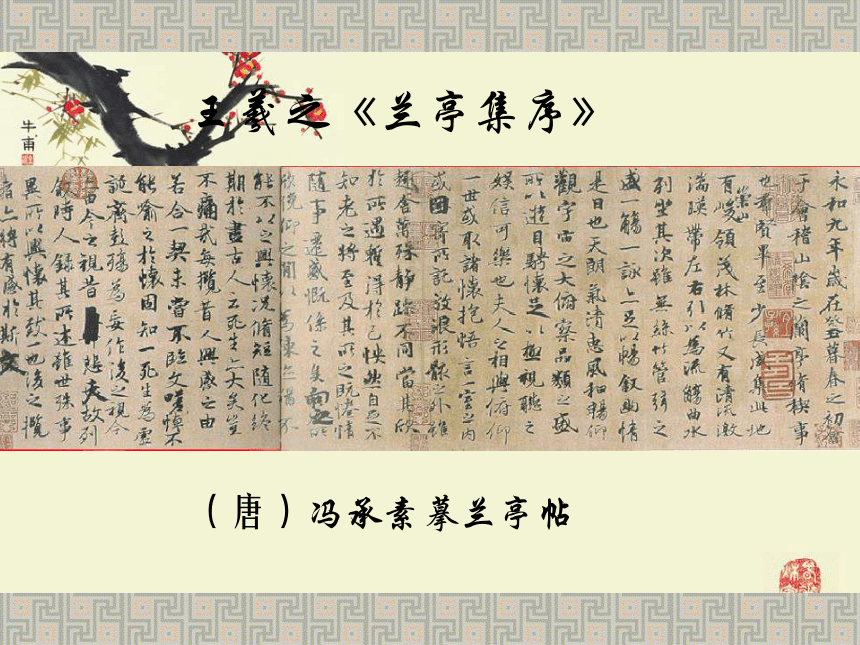 王羲之《兰亭集序》
牛甫
永和九年歲在癸丑暮春之初會
于會稽山陰之蘭亭脩稧事
也羣賢畢至少長咸集此地
有崇山峻領茂林脩竹又有清流激
湍暎帶左右引以為流觴曲水
列坐其次雖無絲竹管弦之
盛一觴一詠亦足以暢敘幽情
是日也天朗氣清惠風和暢仰
觀宇宙之大俯察品類之盛
所以遊目騁懷足以極視聽之
娛信可樂也夫人之相與俯仰
一世或取諸懷抱悟言一室之內
或因寄所託放浪形骸之外雖
趣舍萬殊靜躁不同當其欣
於所遇蹔得於己怏然自足不
知老之將至及其所之既惓情
隨事遷感慨係之矣向之所
欣俛仰之間以為陳迹猶不
能不以之興懷況脩短隨化終
期於盡古人云死生亦大矣豈
不痛哉每攬昔人興感之由
若合一契未嘗不臨文嗟悼不
能喻之於懷固知一死生為虛
誕齊彭殤為妄作後之視今
亦由今之視昔悲夫故列
敘時人錄其所述雖世殊事
異所以興懷其致一也後之攬
者亦將有感於斯文
（唐）冯承素摹兰亭帖